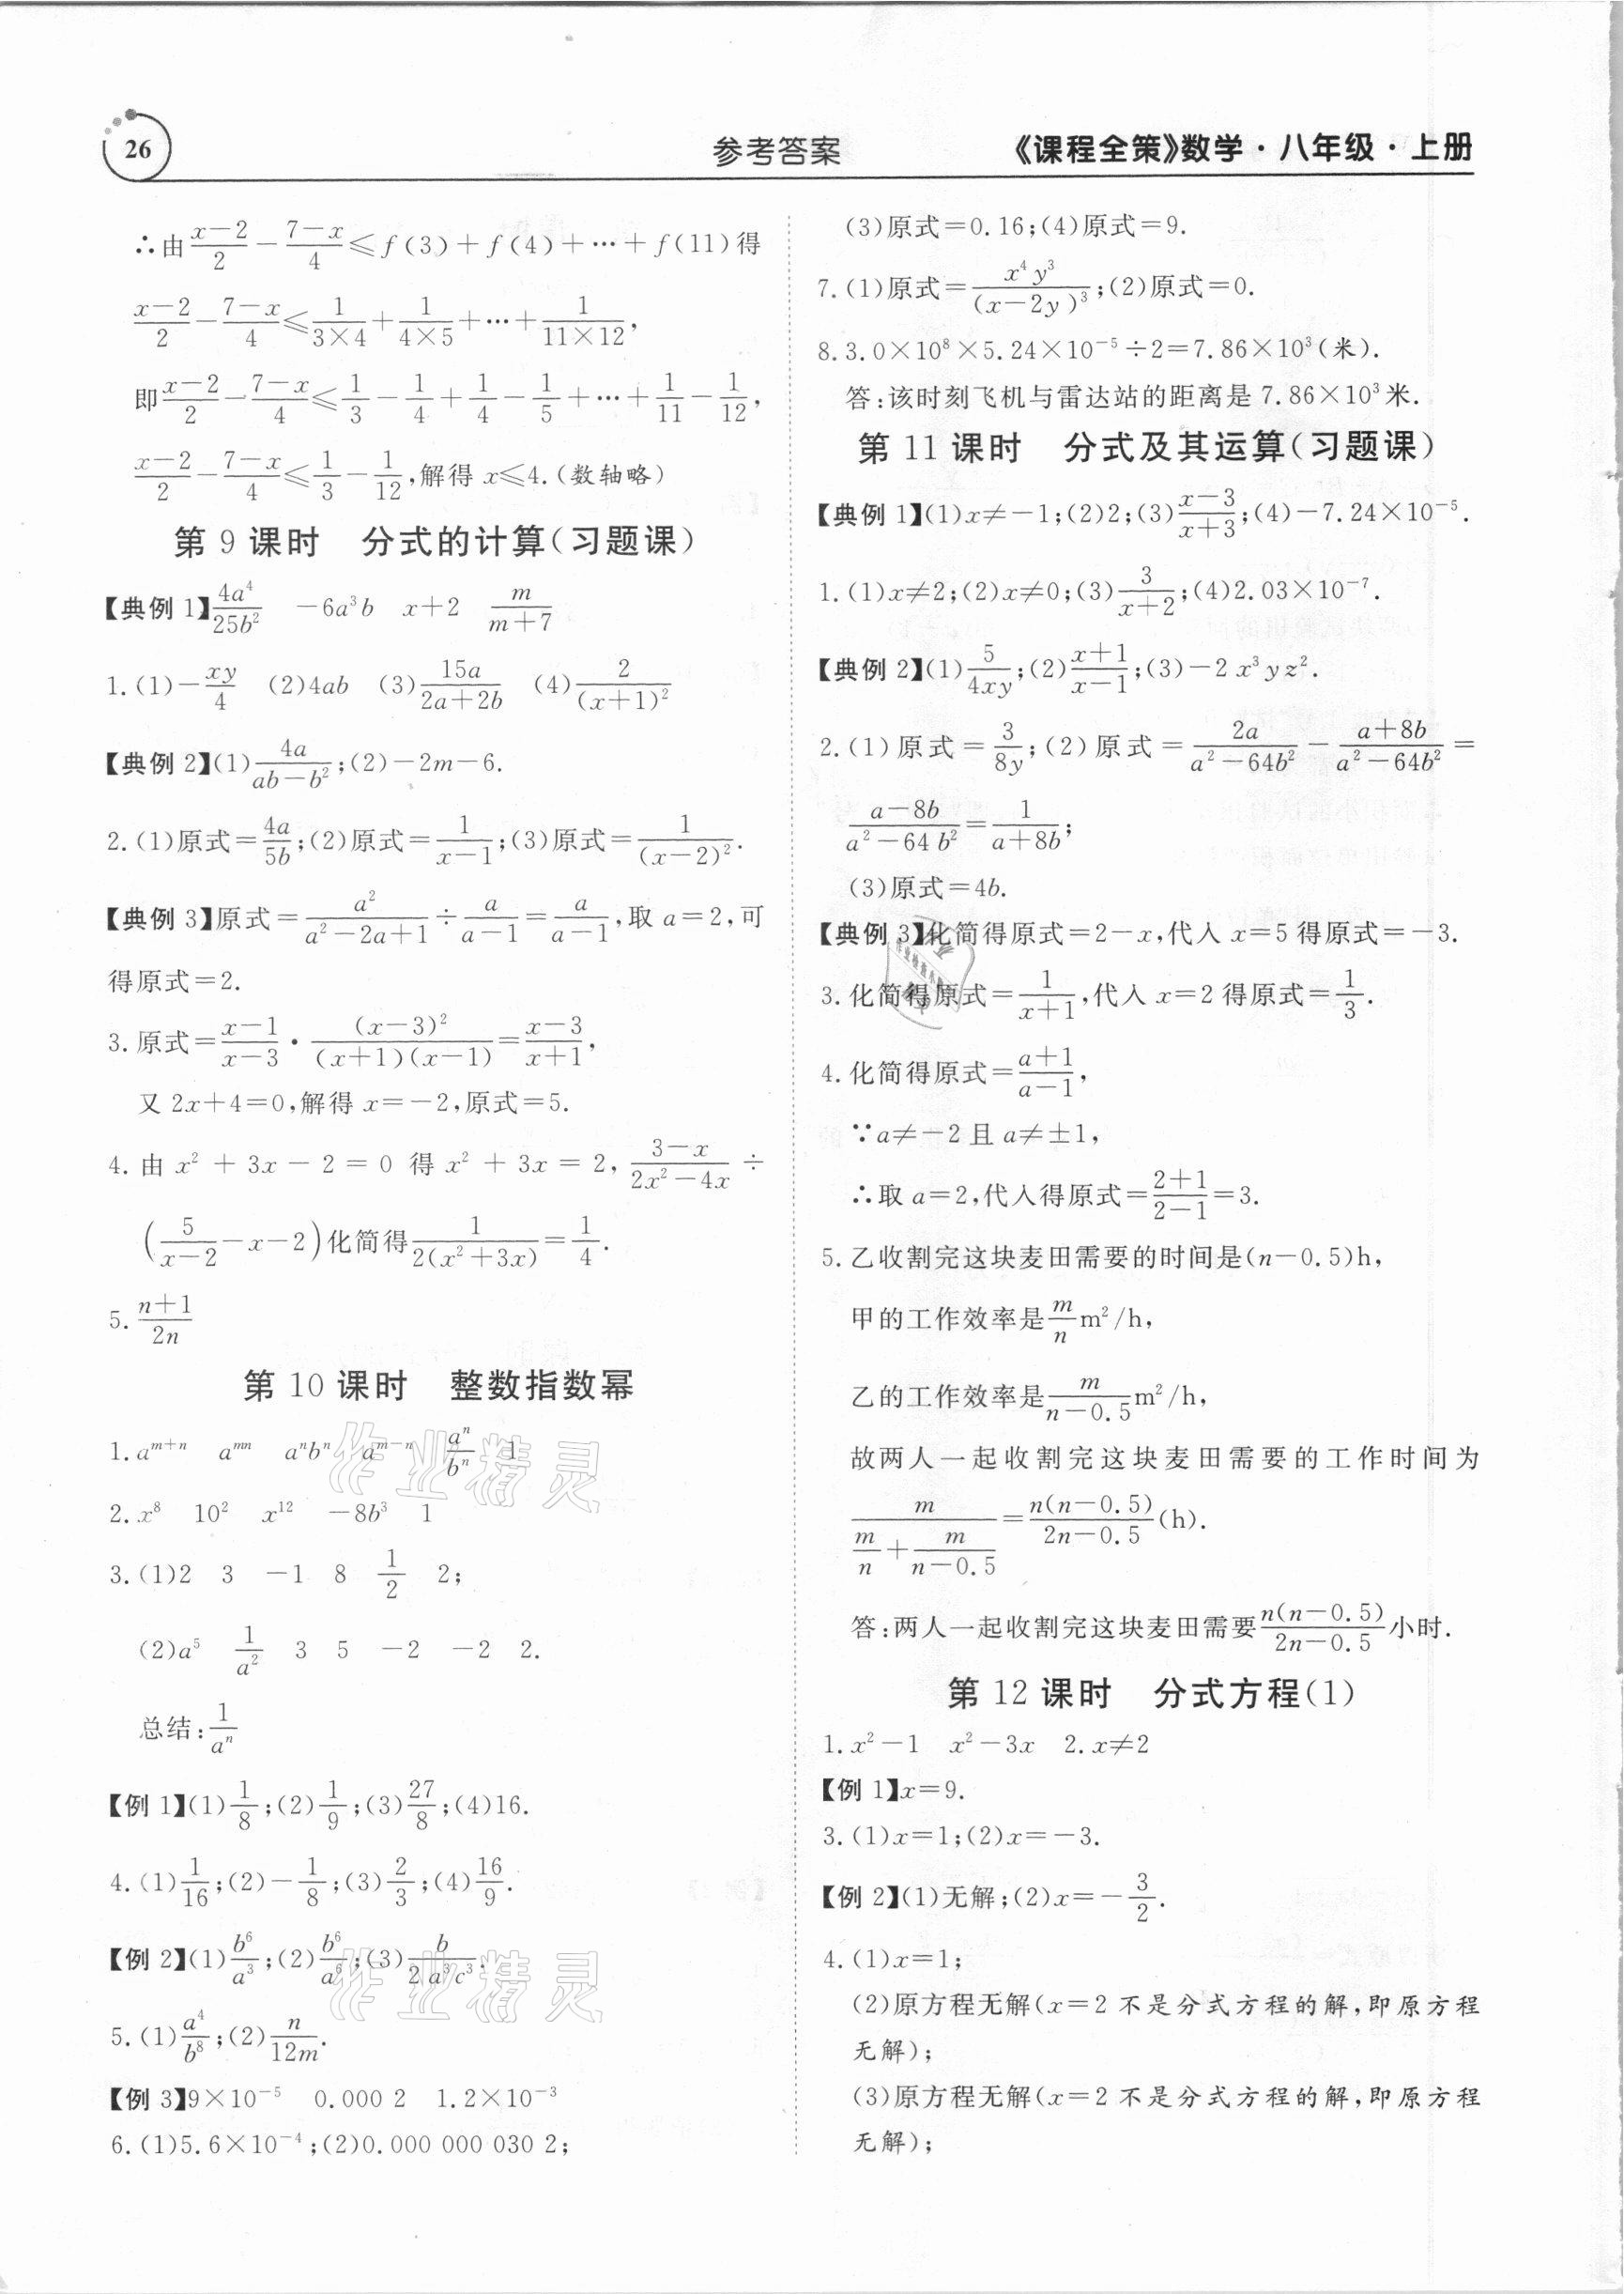 26
参考答案
《课程全策》数学·八年级·上册
∴由(x-2)/2-(7-x)/4≤f(3)+f(4)+…+f(11)得
(x-2)/2-(7-x)/4≤1/(3×4)+1/(4×5)+…+1/(11×12),
即(x-2)/2-(7-x)/4≤1/3-1/4+1/4-1/5+…+1/11-1/12,
(x-2)/2-(7-x)/4≤1/3-1/12,解得 x≤4.(数轴略)
第 9 课时 分式的计算(习题课)
【典例 1】4a⁴/25b² -6a³b x+2 m/(m+7)
1.(1)-xy/4 (2)4ab (3)15a/(2a+2b) (4)2/(x+1)²
【典例 2】(1)4a/(ab-b²);(2)-2m-6.
2.(1)原式=4a/5b;(2)原式=1/(x-1);(3)原式=1/(x-2)².
【典例 3】原式=a²/(a²-2a+1)÷a/(a-1)=a/(a-1),取 a=2,可
得原式=2.
3.原式=(x-1)/(x-3)·(x-3)²/((x+1)(x-1))=(x-3)/(x+1),
又 2x+4=0,解得 x=-2,原式=5.
4.由 x²+3x-2=0 得 x²+3x=2,(3-x)/(2x²-4x)÷
(5/(x-2)-x-2)化简得1/(2(x²+3x))=1/4.
5.(n+1)/2n
第 10 课时 整数指数幂
1.aᵐ⁺ⁿ aᵐⁿ aⁿbⁿ aᵐ⁻ⁿ aⁿ/bⁿ 1
2.x⁸ 10² x¹² -8b³ 1
3.(1)2 3 -1 8 1/2 2;
(2)a⁵ 1/a² 3 5 -2 -2 2.
总结:1/aⁿ
【例 1】(1)1/8;(2)1/9;(3)27/8;(4)16.
4.(1)1/16;(2)-1/8;(3)2/3;(4)16/9.
【例 2】(1)b⁶/a³;(2)b⁶/a⁶;(3)b/(2a³c³).
5.(1)a⁴/b⁸;(2)n/12m.
【例 3】9×10⁻⁵ 0.000 2 1.2×10⁻³
6.(1)5.6×10⁻⁴;(2)0.000 000 030 2;
(3)原式=0.16;(4)原式=9.
7.(1)原式=x⁴y³/(x-2y)³;(2)原式=0.
8.3.0×10⁸×5.24×10⁻⁵÷2=7.86×10³(米).
答:该时刻飞机与雷达站的距离是 7.86×10³米.
第 11 课时 分式及其运算(习题课)
【典例 1】(1)x≠-1;(2)2;(3)(x-3)/(x+3);(4)-7.24×10⁻⁵.
1.(1)x≠2;(2)x≠0;(3)3/(x+2);(4)2.03×10⁻⁷.
【典例 2】(1)5/4xy;(2)(x+1)/(x-1);(3)-2x³yz².
2.(1)原式=3/8y;(2)原式=2a/(a²-64b²)-(a+8b)/(a²-64b²)=
(a-8b)/(a²-64b²)=1/(a+8b);
(3)原式=4b.
【典例 3】化简得原式=2-x,代入 x=5 得原式=-3.
3.化简得原式=1/(x+1),代入 x=2 得原式=1/3.
4.化简得原式=(a+1)/(a-1),
∵a≠-2 且 a≠±1,
∴取 a=2,代入得原式=(2+1)/(2-1)=3.
5.乙收割完这块麦田需要的时间是(n-0.5)h,
甲的工作效率是m/n m²/h,
乙的工作效率是m/(n-0.5) m²/h,
故两人一起收割完这块麦田需要的工作时间为
m/(m/n+m/(n-0.5))=n(n-0.5)/(2n-0.5)(h).
答:两人一起收割完这块麦田需要n(n-0.5)/(2n-0.5)小时.
第 12 课时 分式方程(1)
1.x²-1 x²-3x 2.x≠2
【例 1】x=9.
3.(1)x=1;(2)x=-3.
【例 2】(1)无解;(2)x=-3/2.
4.(1)x=1;
(2)原方程无解(x=2 不是分式方程的解,即原方程
无解);
(3)原方程无解(x=2 不是分式方程的解,即原方程
无解);
作业精灵
作业精灵